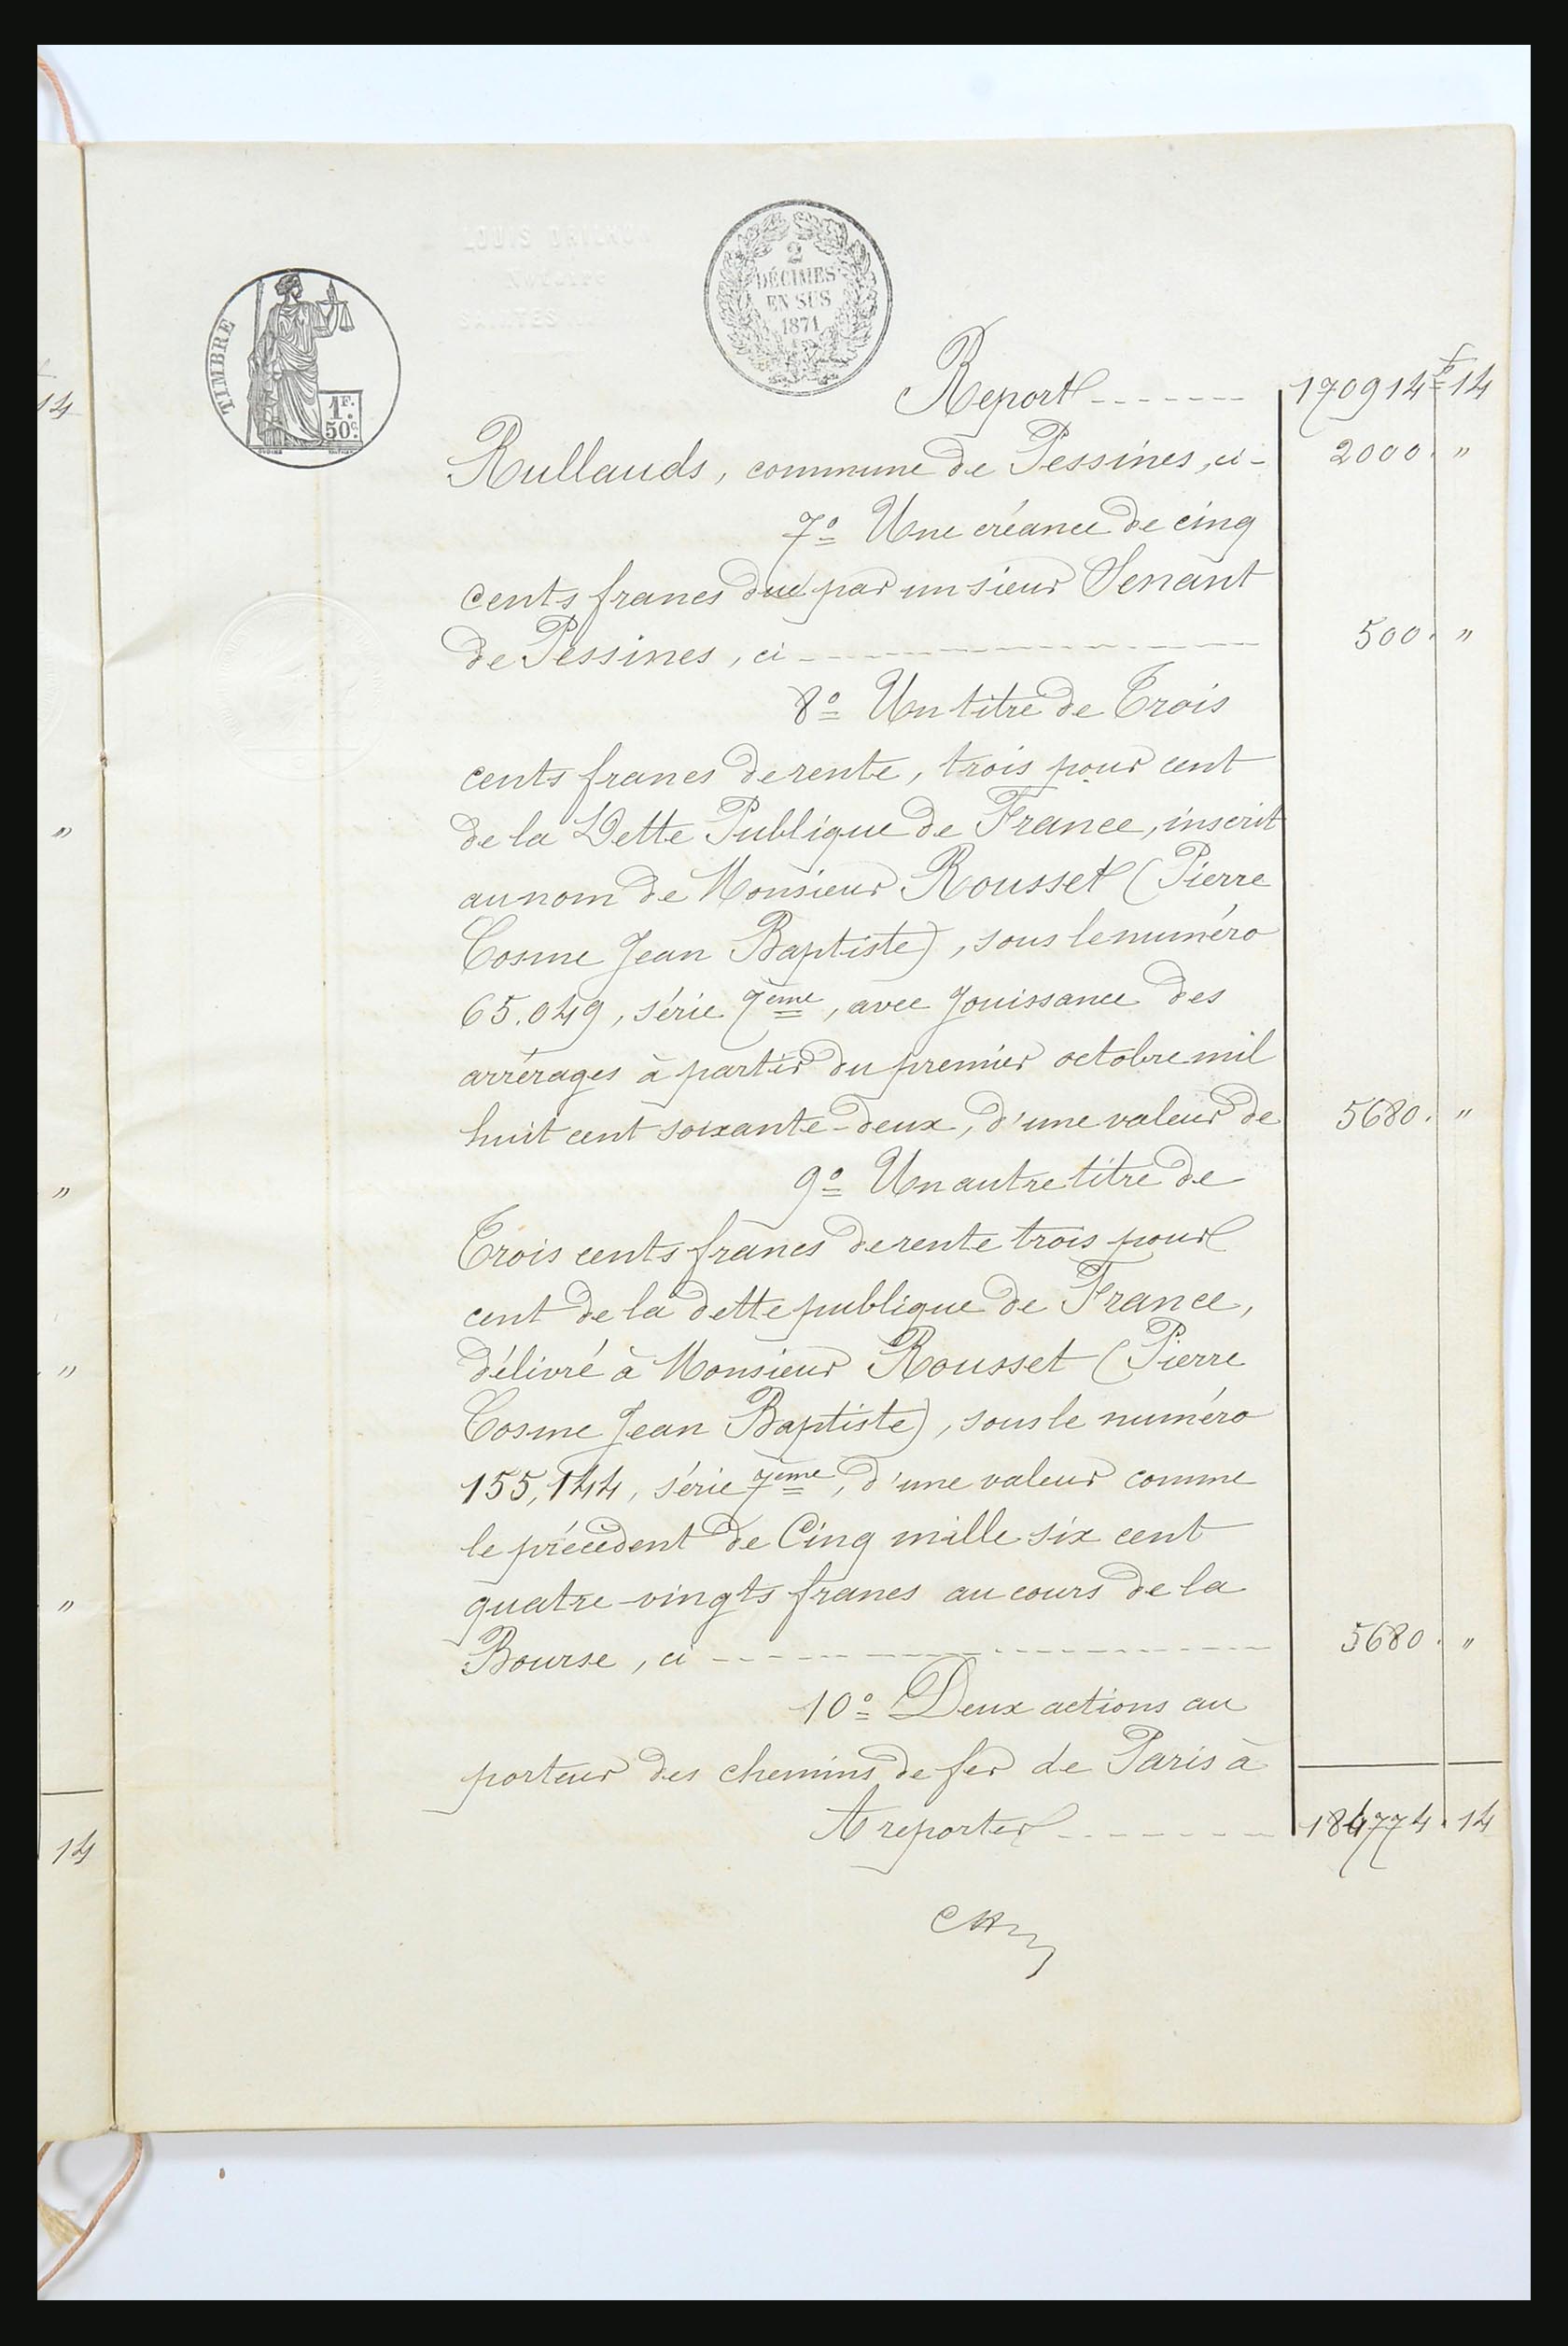 LOUIS
SAINTES
TIMBRE
1F.
50c.
2
DÉCIMES
EN SUS
1871
Report ------- 170914f 14
Rullauds, commune de Pessines, ci - 2000. "
7° Une créance de cinq
cents francs due par un sieur Senant
de Pessines, ci ------- 500. "
8° Un titre de Trois
cents francs de rente, trois pour cent
de la Dette Publique de France, inscrit
au nom de Monsieur Rousset (Pierre
Cosme Jean Baptiste), sous le numéro
65.049, série 7ème, avec jouissance des
arrérages à partir du premier octobre mil
huit cent soixante-deux, d'une valeur de 5680. "
9° Un autre titre de
Trois cents francs de rente trois pour
cent de la dette publique de France,
délivré à Monsieur Rousset (Pierre
Cosme Jean Baptiste), sous le numéro
155,144, série 7ème, d'une valeur comme
le précédent de Cinq mille six cent
quatre-vingts francs au cours de la
Bourse, ci ------- 5680. "
10° Deux actions au
porteur des chemins de fer de Paris à
A reporter ------- 184774. 14
14
"
"
"
"
14